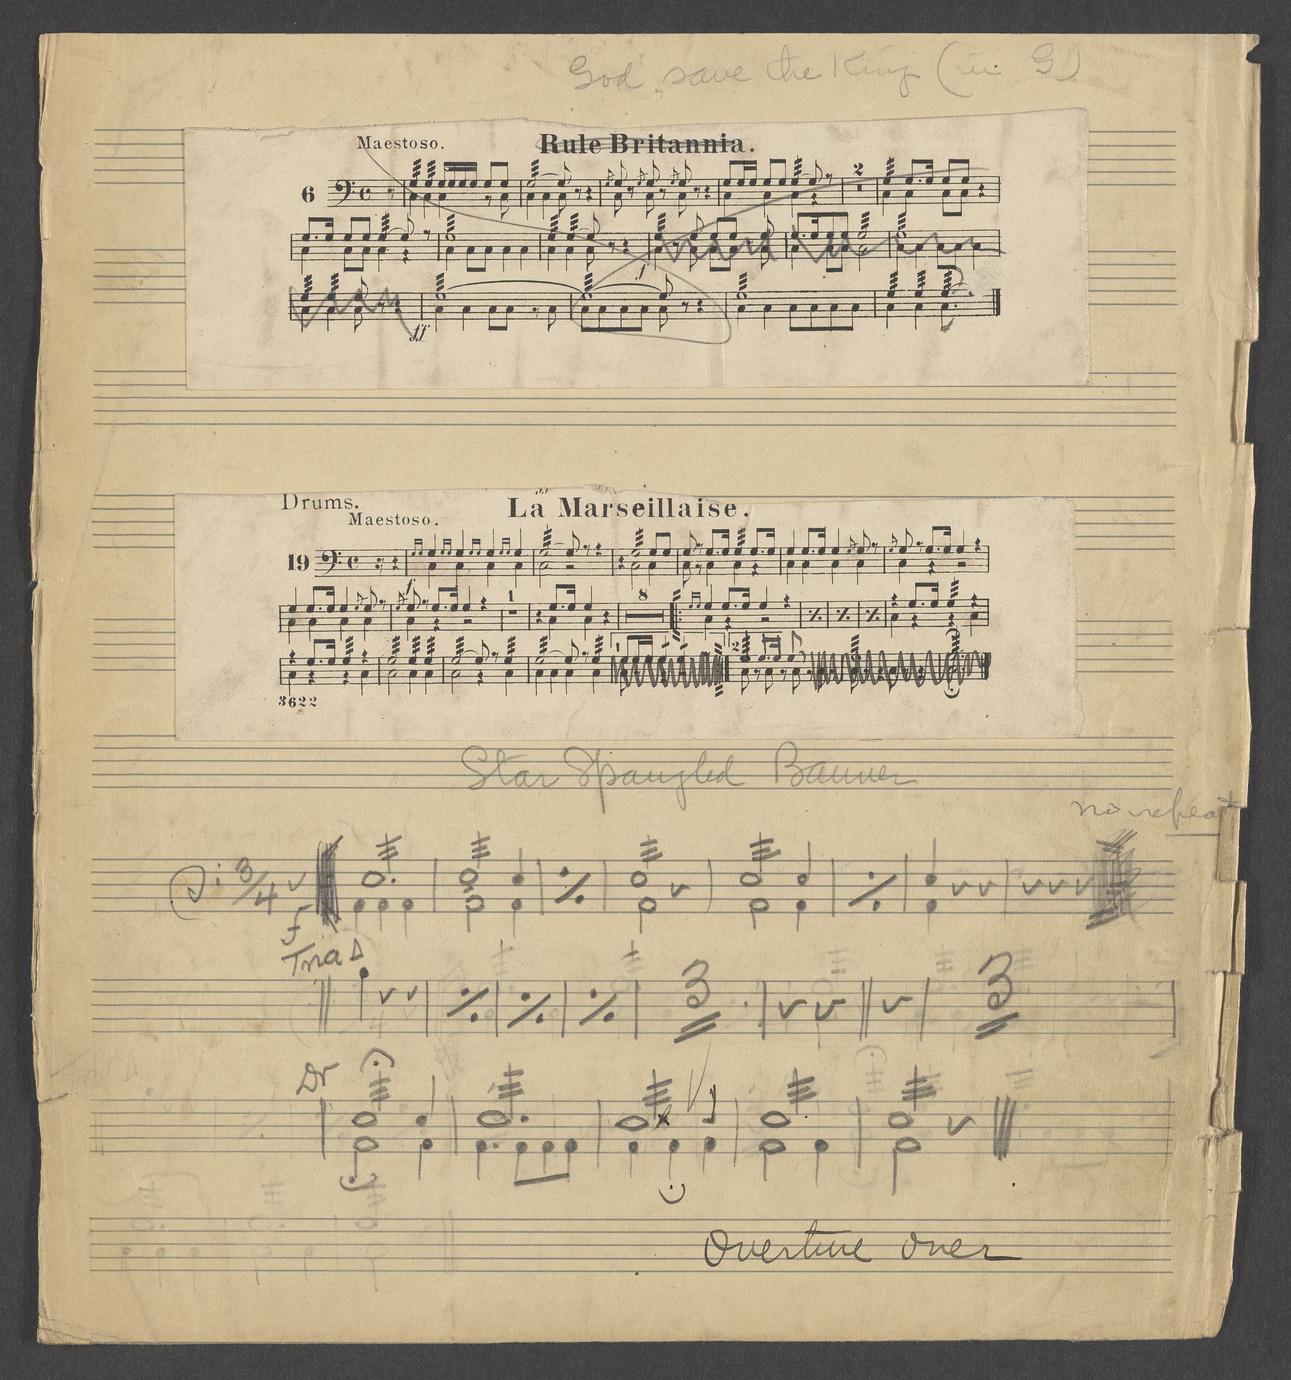 God save the King (in G)
Maestoso. Rule Britannia.
6
2
f
ff
Drums.
Maestoso. La Marseillaise.
19
f
1 8
1 2
3622
Star Spangled Banner
no repeat
3/4
f
Tria
3 3
Dr
Overture over